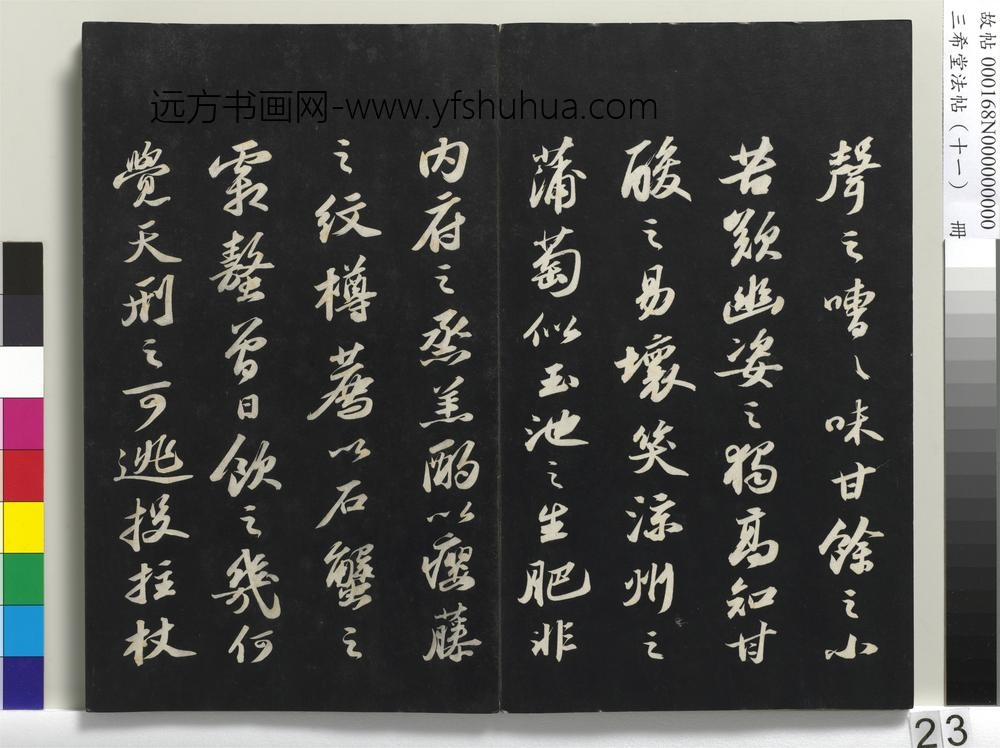 故帖 000168N000000000
三希堂法帖(十一) 冊
远方书画网-www.yfshuhua.com
聲之嘈〻味甘餘之小
苦歎幽姿之獨高知甘
酸之易壞笑涼州之
蒲萄似玉池之生肥非
内府之烝羔酌以癭藤
之紋樽薦以石蟹之
霜螯曾日飲之幾何
覺天刑之可逃投拄杖
23